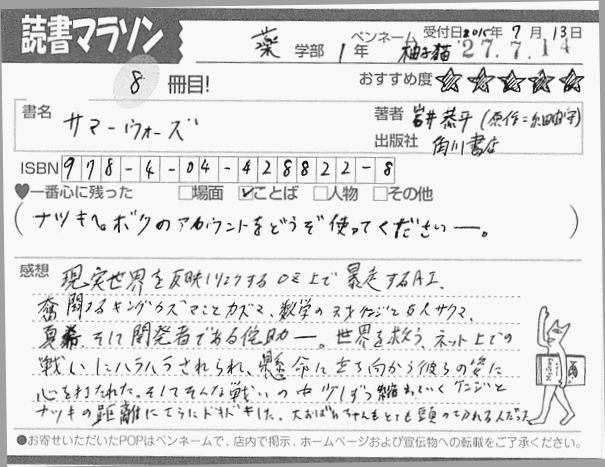 読書マラソン
薬 学部 1年 ペンネーム 柚子猫 受付日2015年 7月 13日
27.7.14
8 冊目! おすすめ度 ☆☆☆☆☆
書名 サマーウォーズ 著者 岩井恭平 (原作:細田守)
出版社 角川書店
ISBN 978-4-04-428822-8
♥一番心に残った □場面 ☑ことば □人物 □その他
(ナツキへ。ボクのアカウントをどうぞ使ってください―。)
感想 現実世界を反映しリンクするOZ上で暴走するAI、
奮闘するキングカズマことカズマ、数学の天才ケンジと友人サクマ、
夏希、そして開発者である侘助―。世界を救う、ネット上での
戦いにハラハラさせられ、懸命に立ち向かう彼らの姿に
心を打たれた。そしてそんな戦いの中少しずつ縮まっていくケンジと
ナツキの距離にさらにドキドキした。大おばあちゃんもとても頭のきれる人だった。
●お寄せいただいたPOPはペンネームで、店内で掲示、ホームページおよび宣伝物への転載をご了承ください。